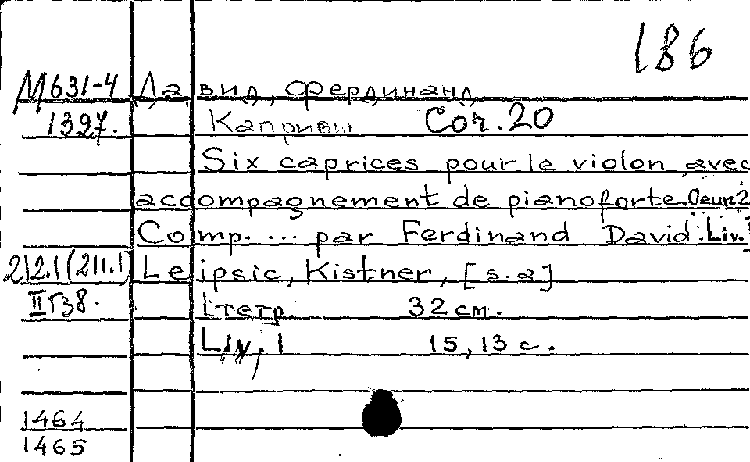 186
М631-4 Давид, Фердинанд
1327. Каприсы Соч. 20
Six caprices pour le violon avec
accompagnement de pianoforte. Oeuv. 2
Comp. ... par Ferdinand David. Liv.
212.1(211.1) Leipsic, Kistner, [s.a]
II Г38. 1 тетр 32 см.
Liv, 1 15, 13 с.
1464
1465